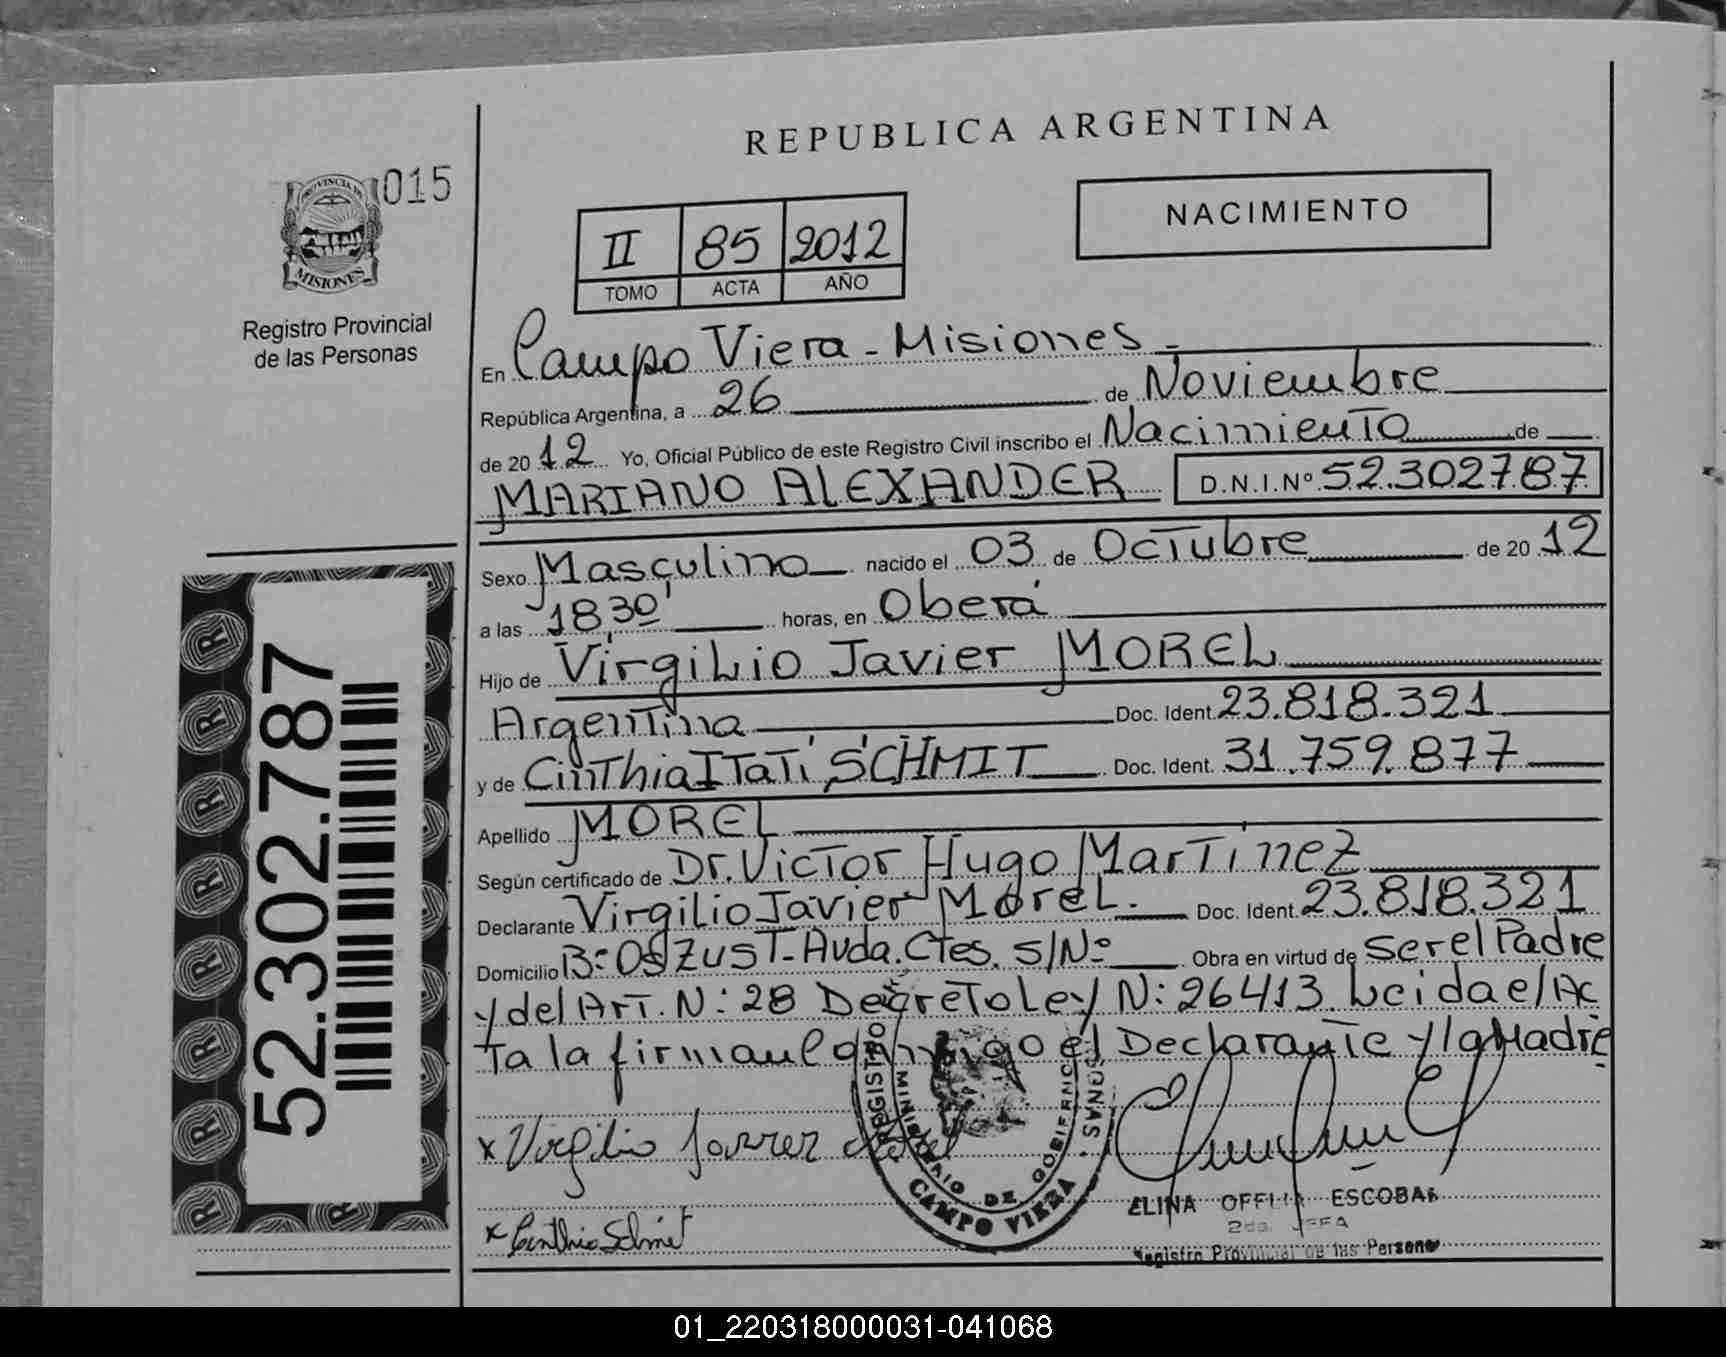 REPUBLICA ARGENTINA
015
PROVINCIA DE
MISIONES
Registro Provincial
de las Personas
NACIMIENTO
II 85 2012
TOMO ACTA AÑO
En Campo Viera - Misiones -
República Argentina, a 26 de Noviembre
de 2012 Yo, Oficial Público de este Registro Civil inscribo el Nacimiento de
MARIANO ALEXANDER D.N.I.Nº 52.302787
Sexo Masculino nacido el 03 de Octubre de 2012
a las 18 30' horas, en Oberá
Hijo de Virgilio Javier MOREL
Argentina Doc. Ident. 23.818.321
y de Cinthia Itatí SCHMIT Doc. Ident. 31.759.877
Apellido MOREL
Según certificado de Dr. Victor Hugo Martinez
Declarante Virgilio Javier Morel. Doc. Ident. 23.818.321
Domicilio Bº Oszust - Avda. Ctes. S/Nº Obra en virtud de ser el Padre
y del Art. N: 28 Decreto Ley N: 26413. Leida el Ac
ta la firman el Declarante y la Madre
x Virgilio Javier Morel
x Cinthia Schmit
REGISTRO
PERSONAS.
MINISTERIO DE GOBIERNO
CAMPO VIERA
ELINA OFELIA ESCOBAR
2da. JEFA
Registro Provincial de las Personas
52.302.787
01_220318000031-041068